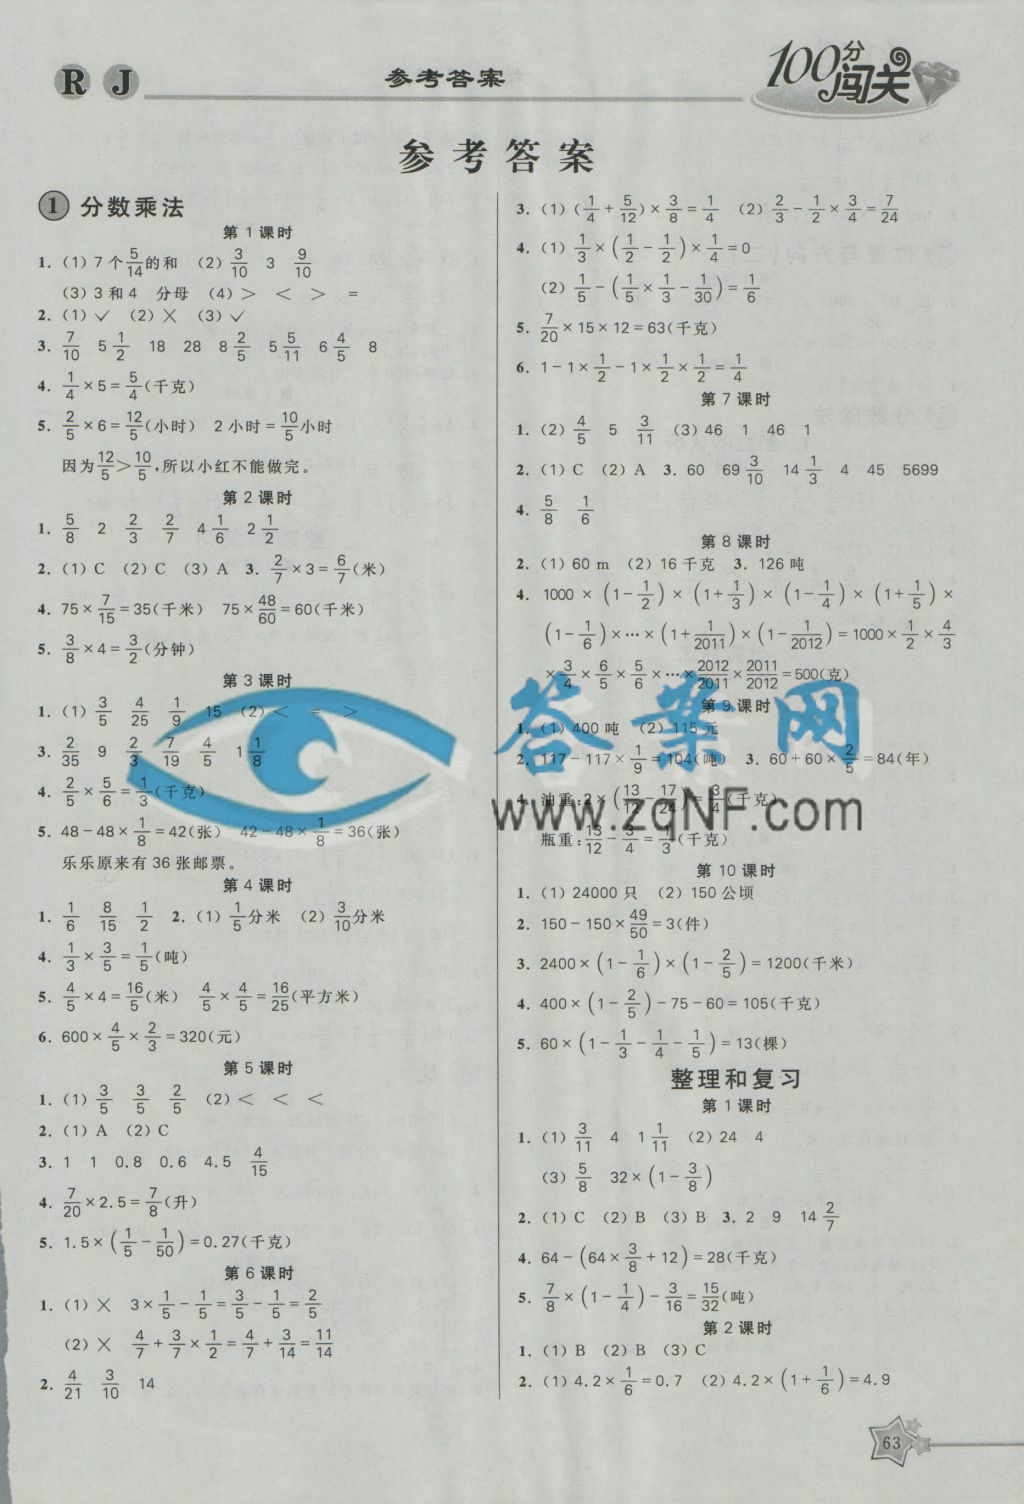 R J
参考答案
100分闯关
参考答案
1 分数乘法
第1课时
1. (1)7个5/14的和 (2)3/10 3 9/10
(3)3和4 分母 (4)> < > =
2. (1)✓ (2)× (3)✓
3. 7/10 5 1/2 18 28 8 2/5 5 5/11 6 4/5 8
4. 1/4×5=5/4(千克)
5. 2/5×6=12/5(小时) 2小时=10/5小时
因为12/5>10/5,所以小红不能做完。
第2课时
1. 5/8 2 2/3 2/7 4 1/6 2 1/2
2. (1)C (2)C (3)A 3. 2/7×3=6/7(米)
4. 75×7/15=35(千米) 75×48/60=60(千米)
5. 3/8×4=3/2(分钟)
第3课时
1. (1)3/5 4/25 1/9 15 (2)< = >
3. 2/35 9 2/3 7/19 4/5 1 1/8
4. 2/5×5/6=1/3(千克)
5. 48-48×1/8=42(张) 42-48×1/8=36(张)
乐乐原来有36张邮票。
第4课时
1. 1/6 8/15 1/2 2. (1)1/5分米 (2)3/10分米
4. 1/3×3/5=1/5(吨)
5. 4/5×4=16/5(米) 4/5×4/5=16/25(平方米)
6. 600×4/5×2/3=320(元)
第5课时
1. (1)3/5 3/5 2/5 (2)< < <
2. (1)A (2)C
3. 1 1 0.8 0.6 4.5 4/15
4. 7/20×2.5=7/8(升)
5. 1.5×(1/5-1/50)=0.27(千克)
第6课时
1. (1)× 3×1/5-1/5=3/5-1/5=2/5
(2)× 4/7+3/7×1/2=4/7+3/14=11/14
2. 4/21 3/10 14
3. (1)(1/4+5/12)×3/8=1/4 (2)2/3-1/2×3/4=7/24
4. (1)1/3×(1/2-1/2)×1/4=0
(2)1/5-(1/5×1/3-1/30)=1/6
5. 7/20×15×12=63(千克)
6. 1-1×1/2-1×1/2×1/2=1/4
第7课时
1. (2)4/5 5 3/11 (3)46 1 46 1
2. (1)C (2)A 3. 60 69 3/10 14 1/3 4 45 5699
4. 5/8 1/6
第8课时
2. (1)60 m (2)16千克 3. 126吨
4. 1000×(1-1/2)×(1+1/3)×(1-1/4)×(1+1/5)×
(1-1/6)×…×(1+1/2011)×(1-1/2012)=1000×1/2×4/3
×3/4×6/5×5/6×…×2012/2011×2011/2012=500(克)
第9课时
1. (1)400吨 (2)115元
2. 117-117×1/9=104(吨) 3. 60+60×2/5=84(年)
4. 油重:2×(13/12-17/24)=3/4(千克)
瓶重:13/12-3/4=1/3(千克)
第10课时
1. (1)24000只 (2)150公顷
2. 150-150×49/50=3(件)
3. 2400×(1-1/6)×(1-2/5)=1200(千米)
4. 400×(1-2/5)-75-60=105(千克)
5. 60×(1-1/3-1/4-1/5)=13(棵)
整理和复习
第1课时
1. (1)3/11 4 1 1/11 (2)24 4
(3)5/8 32×(1-3/8)
2. (1)C (2)B (3)B 3. 2 9 14 2/7
4. 64-(64×3/8+12)=28(千克)
5. 7/8×(1-1/4)-3/16=15/32(吨)
第2课时
1. (1)B (2)B (3)C
2. (1)4.2×1/6=0.7 (2)4.2×(1+1/6)=4.9
63
答案网
www.zqNF.com